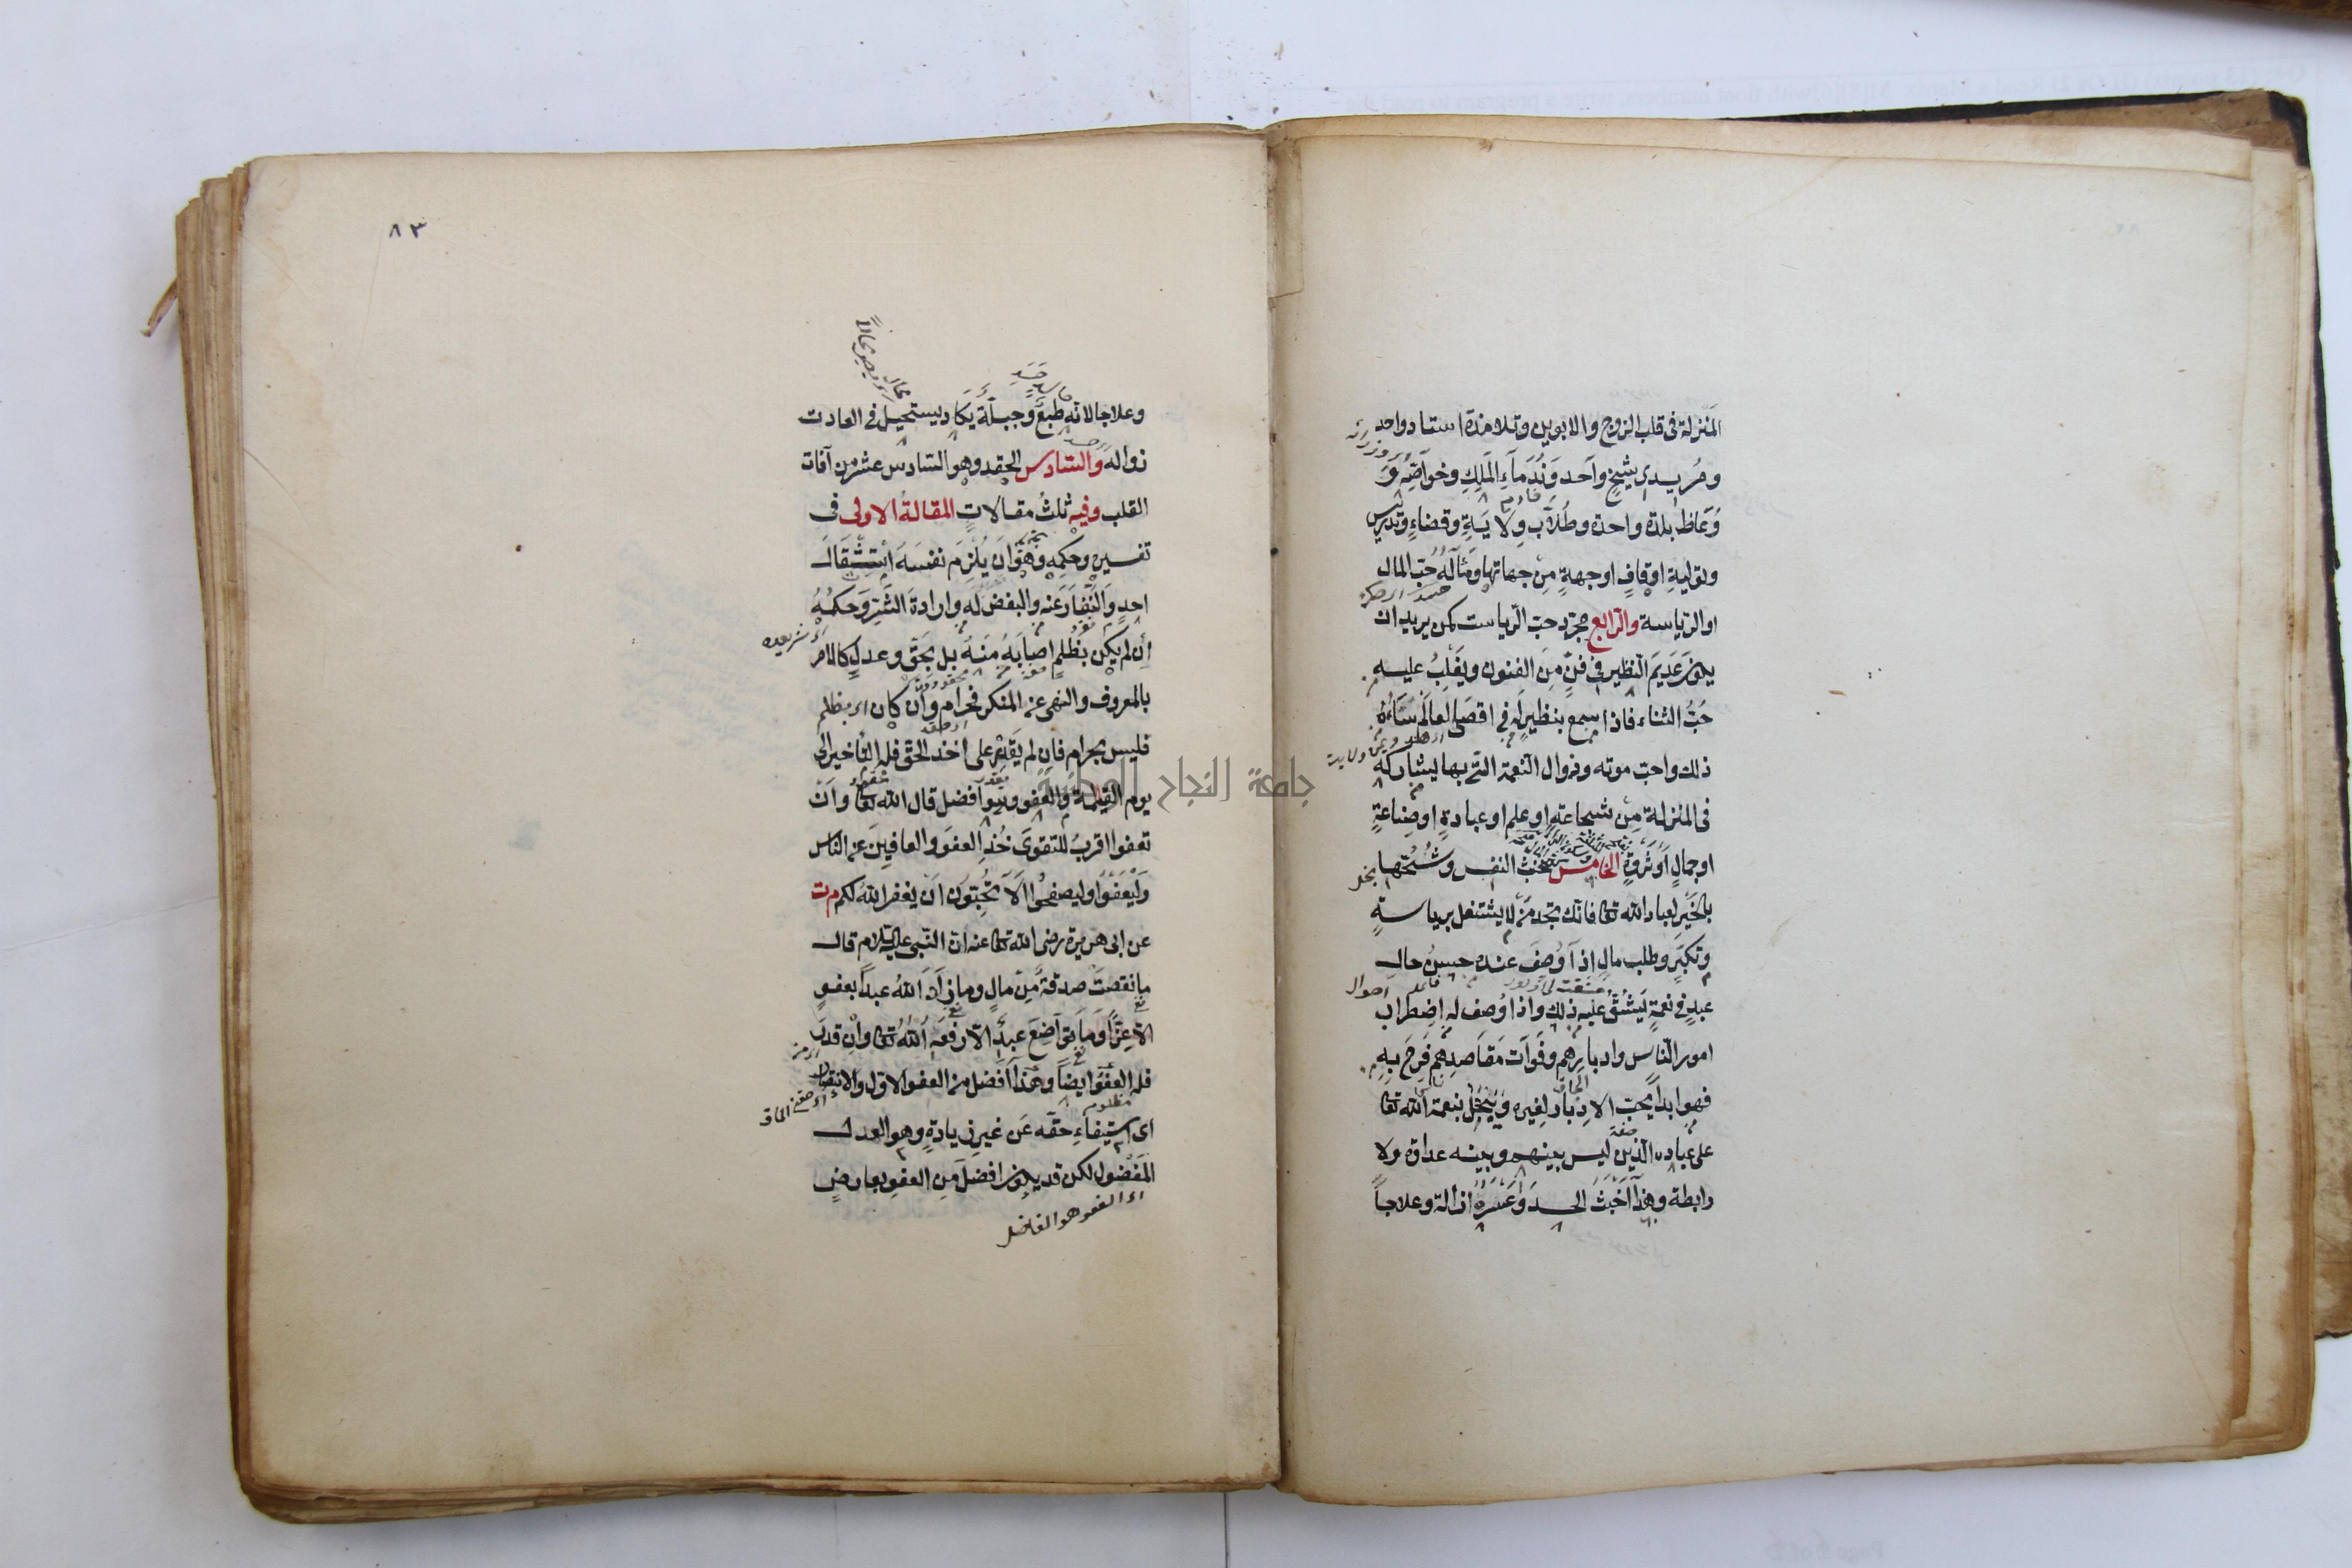 المنزلة فى قلب الزوج والابوين وتلامذة استاد واحد
ومريدى شيخ واحد وندماء الملك وخواصه و
وعاظ بلدة واحدة وطلاب ولاية وقضاء وتدريس
وتولية اوقاف او جهة من جهاتها ومثاله حب المال
او الرياسة والرابع مجرد حب الرياست كمن يريد ان
يكون عديم النظير فى فن من الفنون ويغلب عليه
حب الثناء فاذا سمع بنظير له فى اقصى العالم ساءه
ذلك واحب موته وزوال النعمة التى بها يشاركه
فى المنزلة من شجاعة او علم او عبادة او صناعة
او جمال او ثروة الخامس خبث النفس وشحها
بالخير لعباد الله تعا فانك تجد من لا يشتغل برياسة
وتكبر وطلب مال اذا وصف عنده حسن حال
عبد فى نعمة يشق عليه ذلك واذا وصف له اضطراب
امور الناس وادبارهم وفوات مقاصدهم فرح به
فهو ابدا يحب الادبار لغيره ويبخل بنعمة الله تعا
على عباده الذين ليس بينهم وبينه عداوة ولا
رابطة وهذا اخبث الحسد واعسره ازالة وعلاجا
٨٣
وعلاجا لانه طبع وجبلة يكاد يستحيل فى العادت
زواله والسادس الحقد وهو السادس عشر من آفات
القلب وفيه ثلث مقالات المقالة الاولى فى
تفسيره وحكمه وهو ان يلزم نفسه استثقال
احد والنفار عنه والبغض له وارادة الشر وحكمه
ان لم يكن بظلم اصابه منه بل بحق وعدل كالامر
بالمعروف والنهى عن المنكر فحرام وان كان
فليس بحرام فان لم يقدر على اخذ الحق فله التأخير الى
يوم القيمة والعفو وهو افضل قال الله تعا وان
تعفوا اقرب للتقوى خذ العفو والعافين عن الناس
وليعفوا وليصفحوا الا تحبون ان يغفر الله لكم مت
عن ابى هريرة رضى الله تعا عنه ان النبى عليه السلام قال
ما نقصت صدقة من مال وما زاد الله عبدا بعفو
الا عزا وما تواضع عبد الا رفعه الله تعا وان قدر
فله العفو ايضا وهذا افضل من العفو الاول والانتقام
اى استيفاء حقه عن غير زيادة وهو العدل
المفضول لكن قد يكون افضل من العفو بعارض
اى العفو هو الفاضل
جامعة النجاح الوطنية